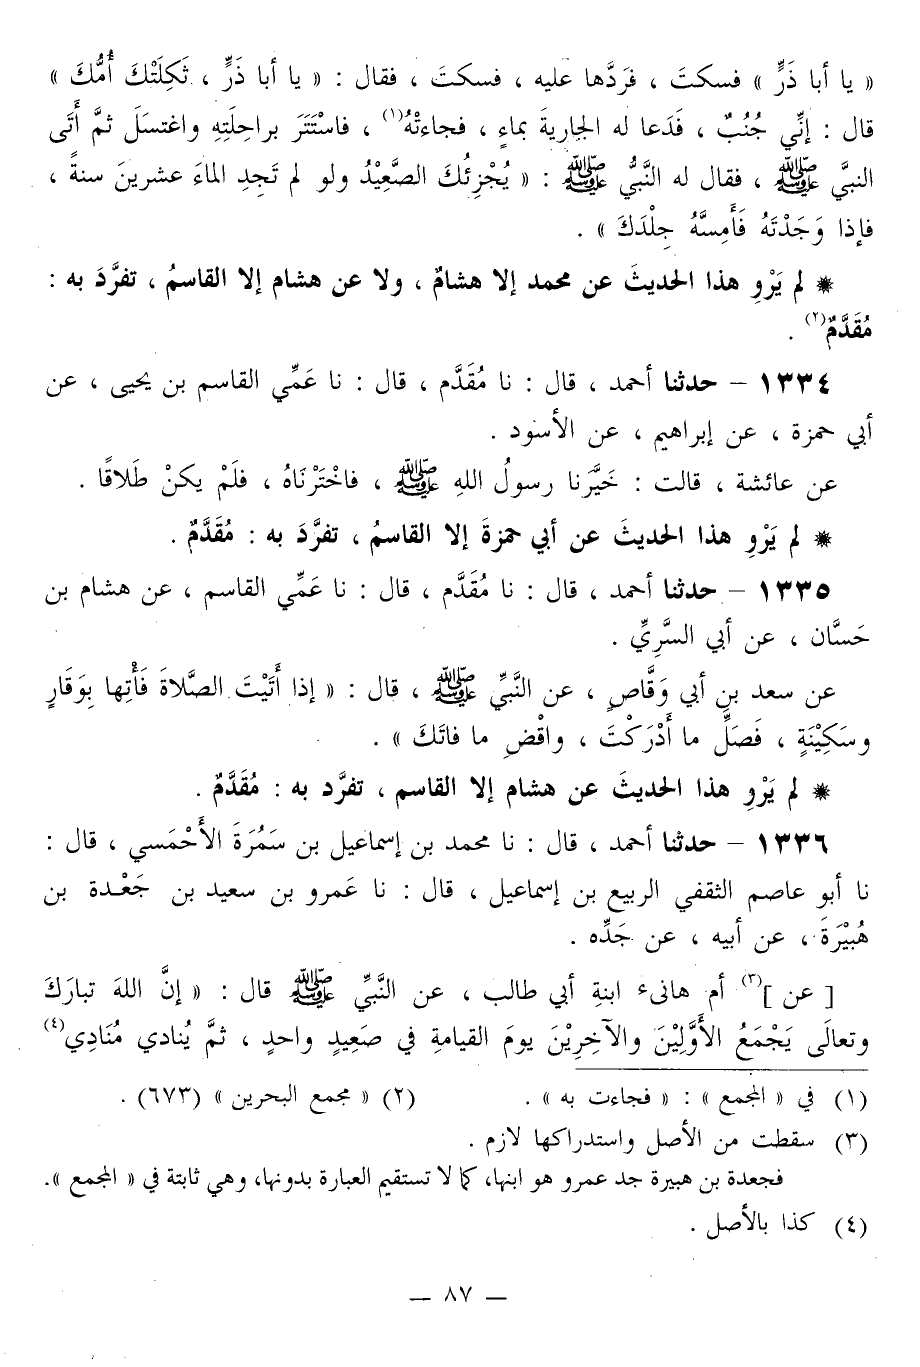 « يا أبا ذَرٍّ » فسكتَ ، فَرَدَّها عليه ، فسكتَ ، فقال : « يا أبا ذَرٍّ ، ثَكِلَتْكَ أُمُّكَ »
قال : إنِّي جُنُبٌ ، فَدَعا له الجاريةَ بماءٍ ، فجاءتْهُ(١) ، فاسْتَتَرَ براحِلَتِهِ واغتسَلَ ثمَّ أَتَى
النبيَّ ﷺ ، فقال له النَّبيُّ ﷺ : « يُجْزِئُكَ الصَّعِيْدُ ولو لم تَجِدِ الماءَ عشرينَ سنةً ،
فإذا وَجَدْتَهُ فَأَمِسَّهُ جِلْدَكَ » .
* لم يَرْوِ هذا الحديثَ عن محمد إلا هشامٌ ، ولا عن هشام إلا القاسمُ ، تفرَّدَ به :
مُقَدَّمٌ(٢) .
١٣٣٤ – حدثنا أحمد ، قال : نا مُقَدَّم ، قال : نا عَمِّي القاسم بن يحيى ، عن
أبي حمزة ، عن إبراهيم ، عن الأسود .
عن عائشة ، قالت : خَيَّرَنا رسولُ اللهِ ﷺ ، فاخْتَرْنَاهُ ، فلَمْ يكنْ طَلاقًا .
* لم يَرْوِ هذا الحديثَ عن أبي حمزةَ إلا القاسمُ ، تفرَّدَ به : مُقَدَّمٌ .
١٣٣٥ – حدثنا أحمد ، قال : نا مُقَدَّم ، قال : نا عَمِّي القاسم ، عن هشام بن
حَسَّان ، عن أبي السَّرِيِّ .
عن سعد بنِ أبي وَقَّاصٍ ، عن النَّبيِّ ﷺ ، قال : « إذا أَتَيْتَ الصَّلاةَ فَأْتِها بِوَقارٍ
وسَكِيْنَةٍ ، فَصَلِّ ما أَدْرَكْتَ ، واقْضِ ما فاتَكَ » .
* لم يَرْوِ هذا الحديثَ عن هشام إلا القاسم ، تفرَّد به : مُقَدَّمٌ .
١٣٣٦ – حدثنا أحمد ، قال : نا محمد بن إسماعيل بن سَمُرَةَ الأَحْمَسي ، قال :
نا أبو عاصم الثقفي الربيع بن إسماعيل ، قال : نا عَمرو بن سعيد بن جَعْدة بن
هُبَيْرَةَ ، عن أبيه ، عن جَدِّه .
[ عن ](٣) أم هانىء ابنةِ أبي طالب ، عن النَّبيِّ ﷺ قال : « إنَّ اللهَ تبارَكَ
وتعالَى يَجْمَعُ الأَوَّلِيْنَ والآخِرِيْنَ يومَ القيامةِ في صَعِيدٍ واحدٍ ، ثمَّ يُنادي مُنَادِي(٤)
(١) في « المجمع » : « فجاءت به » . (٢) « مجمع البحرين » (٦٧٣) .
(٣) سقطت من الأصل واستدراكها لازم .
فجعدة بن هبيرة جد عمرو هو ابنها، كما لا تستقيم العبارة بدونها، وهي ثابتة في « المجمع ».
(٤) كذا بالأصل .
— ٨٧ —